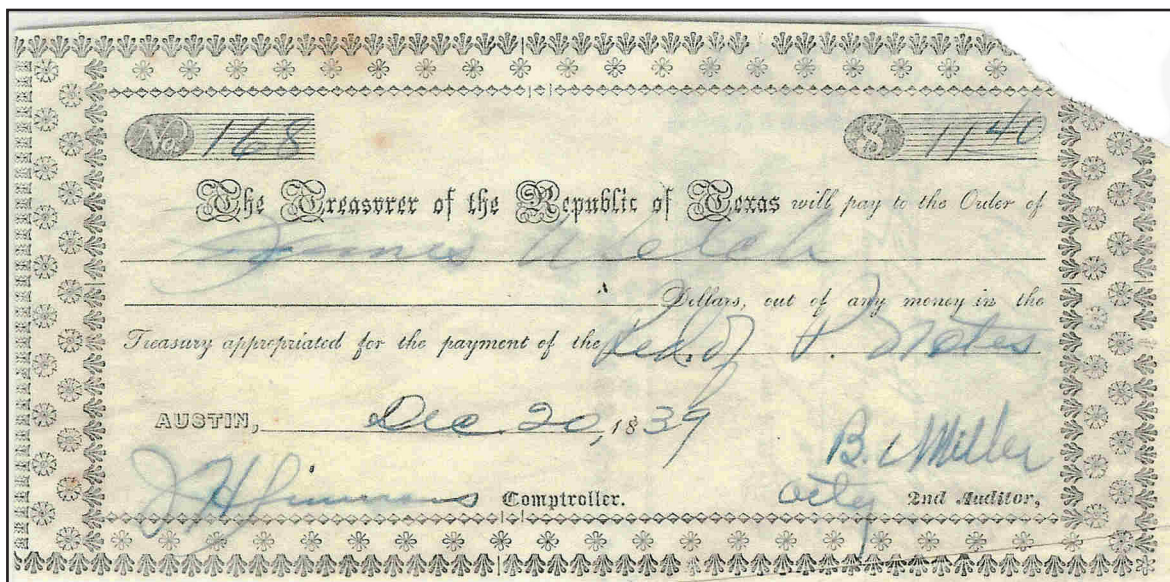 No. 168 $ 11 40
The Treasurer of the Republic of Texas will pay to the Order of
James Welch
Dollars, out of any money in the
Treasury appropriated for the payment of the Red. of P. Notes
AUSTIN, Dec 20, 1839
B. Miller
Comptroller. 2nd Auditor,